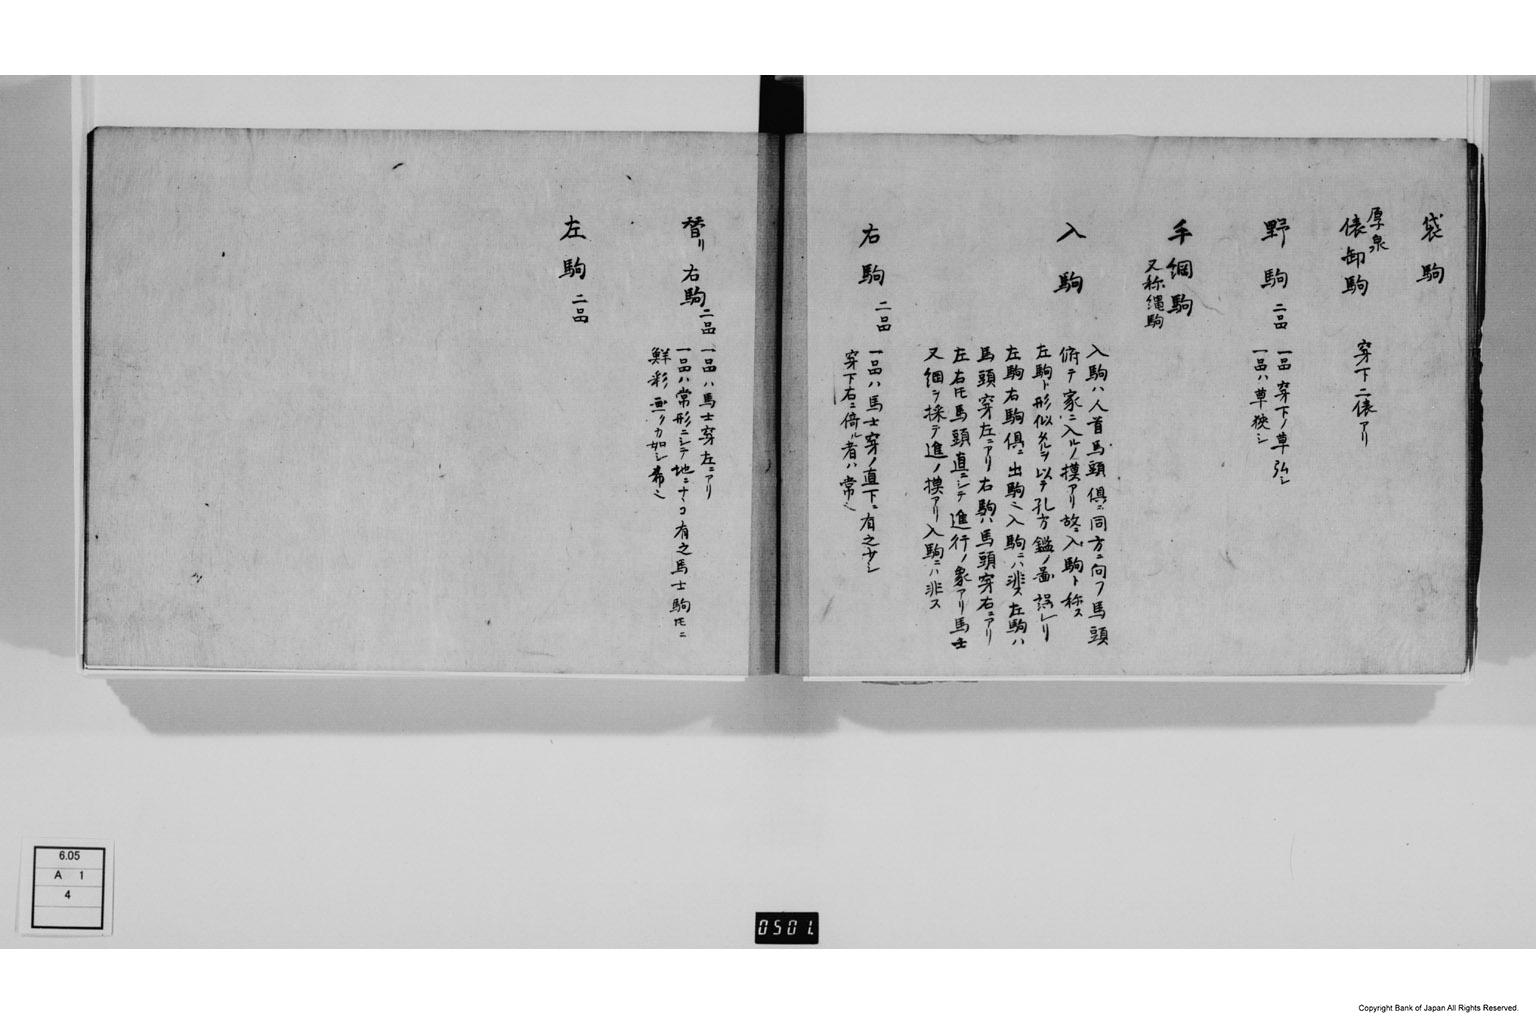 袋駒
厚泉
俵卸駒 穿下二俵アリ
野駒 二品 一品穿下ノ草弘シ
一品ハ草狹シ
手綱駒
又称縄駒
入駒 入駒ハ人首馬頭倶ニ同方ニ向フ馬頭
俯テ家ニ入ルノ摸アリ故ニ入駒ト称ス
左駒ト形似タルヲ以テ孔方鑑ノ啚誤レリ
左駒右駒倶ニ出駒也入駒ニハ非ス左駒ハ
馬頭穿左ニアリ右駒ハ馬頭穿右ニアリ
左右圧馬頭直ニシテ進行ノ象アリ馬士
又綱ヲ採テ進ノ摸アリ入駒ニハ非ス
右駒 二品 一品ハ馬士穿ノ直下ニ有之少シ
穿下右ニ倚ル者ハ常也
替リ右駒 二品 一品ハ馬士穿左ニアリ
一品ハ常形ニシテ地ニナマコ有之馬士駒圧ニ
鮮彩画クカ如シ希也
左駒 二品
6.05
A 1
4
0501
Copyright Bank of Japan All Rights Reserved.